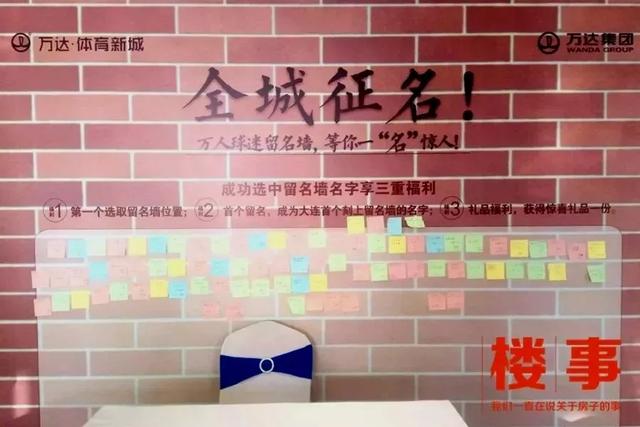 万达·体育新城
万达集团
WANDA GROUP
全城征名!
万人球迷留名墙,等你一“名”惊人!
成功选中留名墙名字享三重福利
福利1 第一个选取留名墙位置;福利2 首个留名、成为大连首个刻上留名墙的名字;福利3 礼品福利,获得惊喜礼品一份。
楼事
我们一直在说关于房子的事